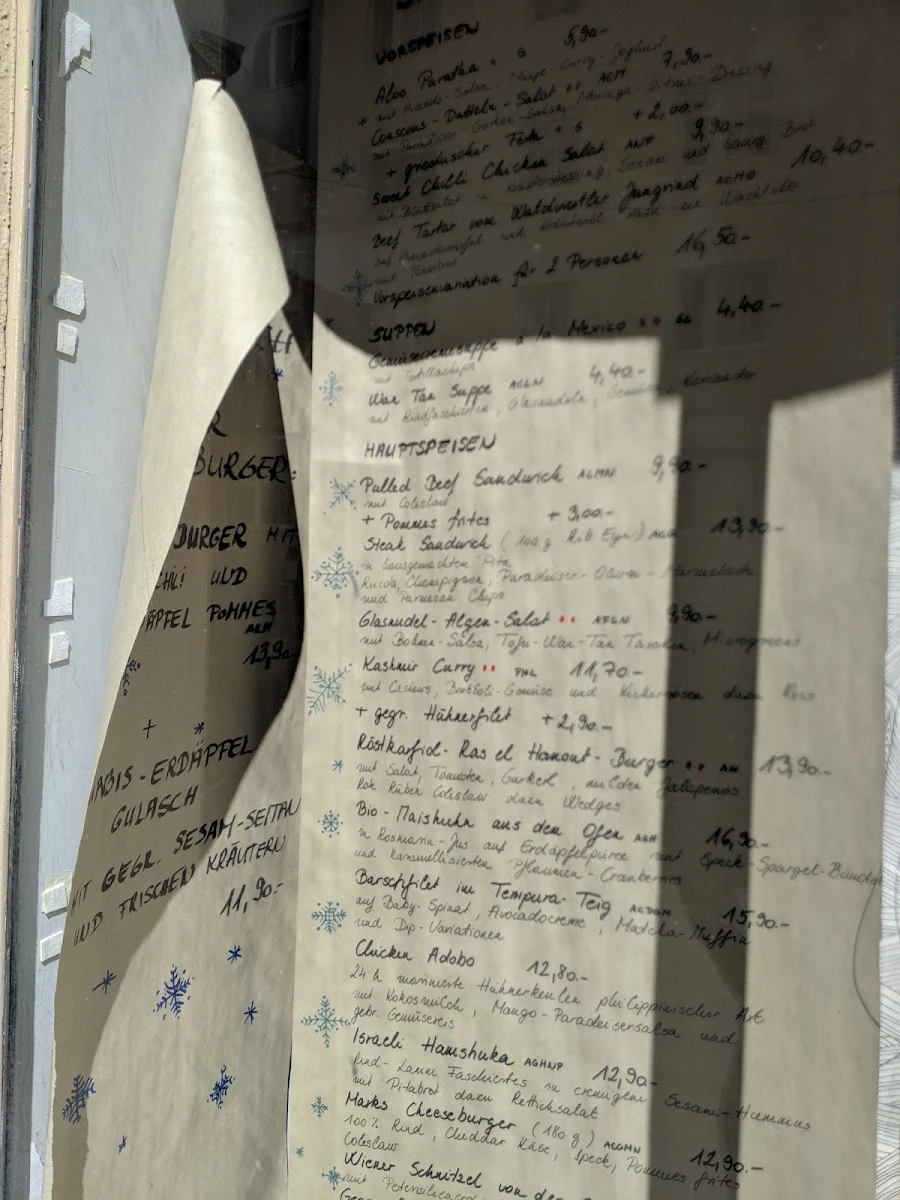 VORSPEISEN
Aloo Paratha • G 5,90.-
* mit Avocado-Salsa, Mango-Curry-Joghurt
Couscous-Datteln-Salat •• AGM 7,90.-
mit Paradeiser-Gurken-Salsa, Moringa-Zitrus-Dressing
+ griechischer Feta • G + 2,00.-
Sweet Chilli Chicken Salat ANF 9,90.-
mit Blattsalat in Kräuterdressing, Sesam und hausg. Brot
Beef Tartar vom Waldviertler Jungrind ACMO 10,40.-
auf Paradeiserapfel und Kräuteröl dazu ein Wachtelei
und Toastbrot
Vorspeisenvariation für 2 Personen 16,50.-
SUPPEN
Gemüsecremesuppe a la Mexico •• GL 4,40.-
mit Tortillachips
Wan Tan Suppe ACLN 4,40.-
mit Rindfaschiertem, Glasnudeln, Gemüse, Koriander
HAUPTSPEISEN
Pulled Beef Sandwich ALMN 9,90.-
mit Coleslaw
+ Pommes frites + 3,00.-
Steak Sandwich (100 g Rib Eye) AGM 13,90.-
in hausgemachtem Pita
Rucola, Champignon, Paradeiser-Oliven-Marmelade
und Parmesan Chips
Glasnudel-Algen-Salat •• AFGN 9,90.-
mit Bohnen-Salsa, Tofu-Wan-Tan Taschen, Microgreens
Kashmir Curry •• FHL 11,70.-
mit Cashews, Brokkoli-Gemüse und Kichererbsen dazu Reis
+ gegr. Hühnerfilet + 2,90.-
Röstkarfiol-Ras el Hanout-Burger •• AN 13,90.-
mit Salat, Tomaten, Gurkerl, milden Jalapenos
Rote Rüben Coleslaw dazu Wedges
Bio-Maishuhn aus dem Ofen AGM 16,90.-
in Rosmarin-Jus auf Erdäpfelpüree mit Speck-Spargel-Bündel
und karamellisierten Pflaumen-Cranberries
Barschfilet im Tempura-Teig ACDGM 15,90.-
auf Baby-Spinat, Avocadocreme, Matcha-Muffin
und Dip-Variationen
Chicken Adobo 12,80.-
24 h marinierte Hühnerkeulen philippinischer Art
mit Kokosmilch, Mango-Paradeisersalsa und
gebr. Gemüsereis
Israeli Hamshuka AGHNP 12,90.-
Rind-Lamm Faschiertes in cremigem Sesam-Hummus
mit Pitabrot dazu Rettichsalat
Marks Cheeseburger (180 g.) ACGMN 12,90.-
100% Rind, Cheddar Käse, Speck, Pommes frites
Coleslaw
Wiener Schnitzel von der
mit Petersilienerd
R
BURGER:
BURGER MIT
CHILI UND
ÄPFEL POMMES
AGM
13,90.-
+
ABIS-ERDÄPFEL
GULASCH
MIT GEGR. SESAM-SEITAN
UND FRISCHEN KRÄUTERN
11,90.-